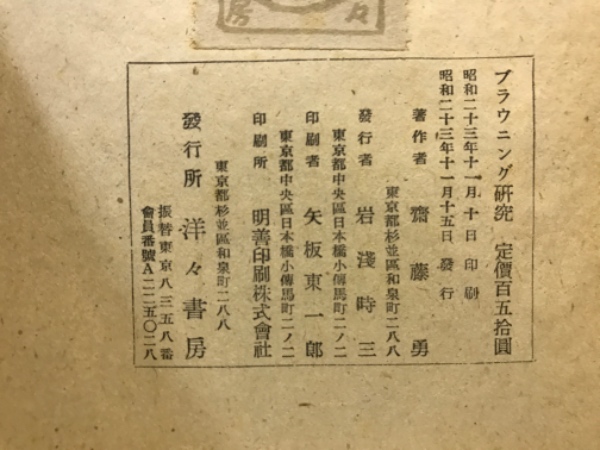 ブラウニング研究 定價百五拾圓
昭和二十三年十一月十日 印刷
昭和二十三年十一月十五日 發行
著作者 齋藤勇
東京都杉並區和泉町二八八
發行者 岩淺時三
東京都中央區日本橋小傳馬町二ノ二
印刷者 矢板東一郎
東京都中央區日本橋小傳馬町二ノ二
印刷所 明善印刷株式會社
東京都杉並區和泉町二八八
發行所 洋々書房
振替東京八三五八番
會員番號A二二五〇二八
々
房